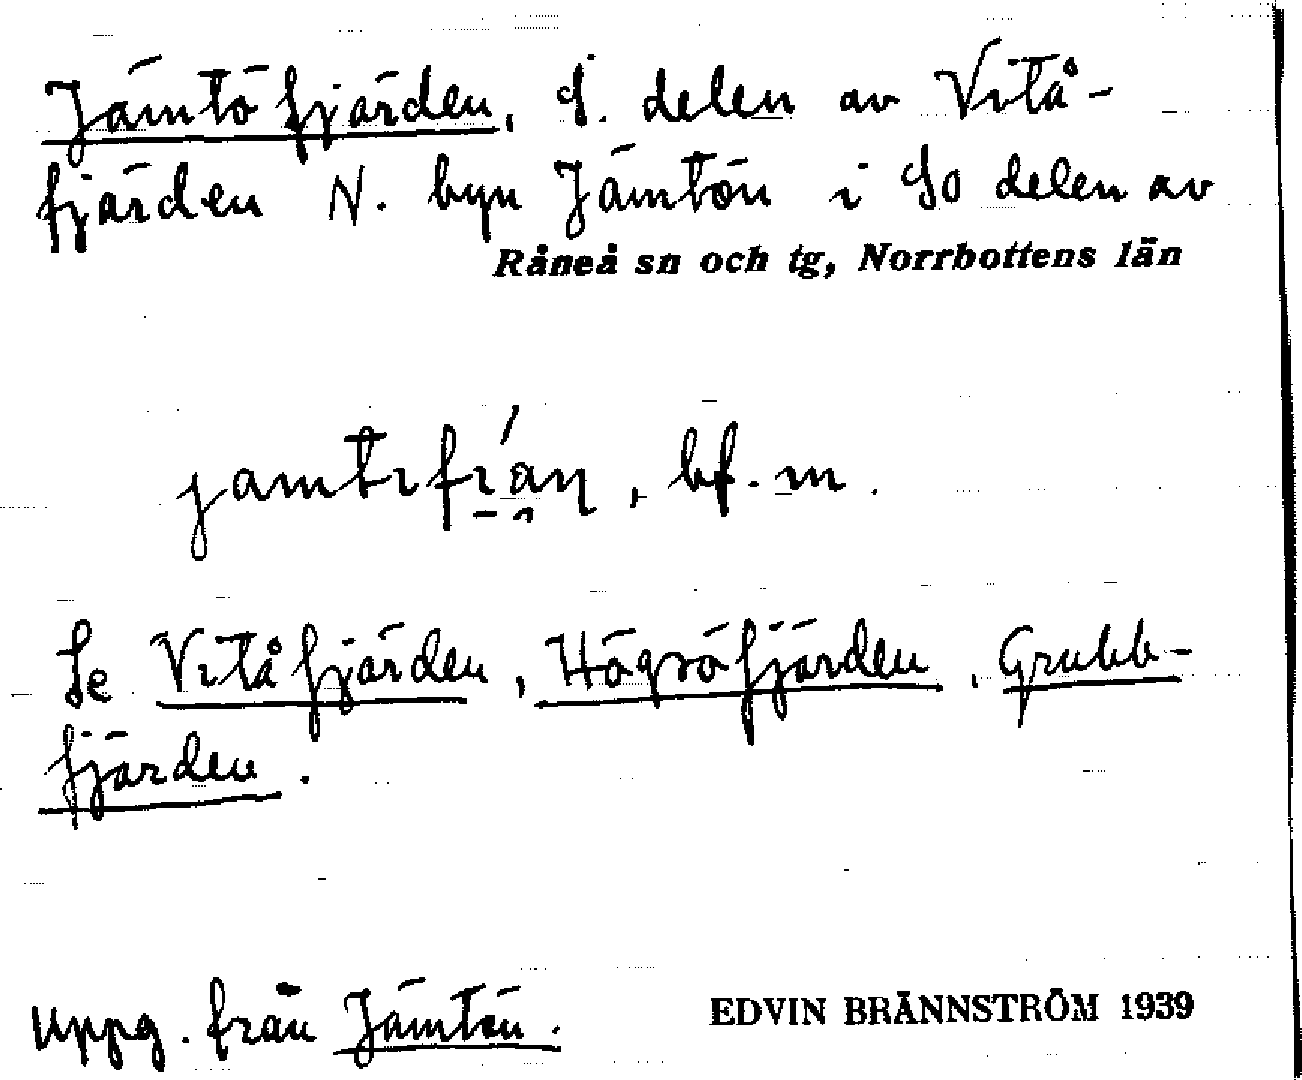 Jämtöfjärden, S. delen av Vitå-
fjärden N. byn Jämtön i SO delen av
Råneå sn och tg, Norrbottens län
bf. m.
Se Vitåfjärden, Högsöfjärden, Grubb-
fjärden.
Uppg. från Jämtön.
EDVIN BRÄNNSTRÖM 1939